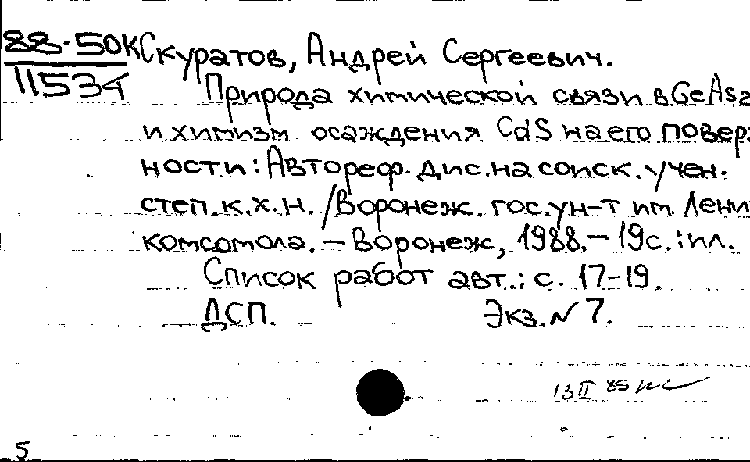 88-50К Скуратов, Андрей Сергеевич.
11534
Природа химической связи в GeAs2
и химизм осаждения CdS на его поверх
ности: Автореф. дис. на соиск. учен.
степ. к.х.н. /Воронеж. гос. ун-т им Лени
комсомола. – Воронеж, 1988. – 19с. : ил.
Список работ авт.: с. 17-19.
ДСП. Экз. № 7.
13 II
5